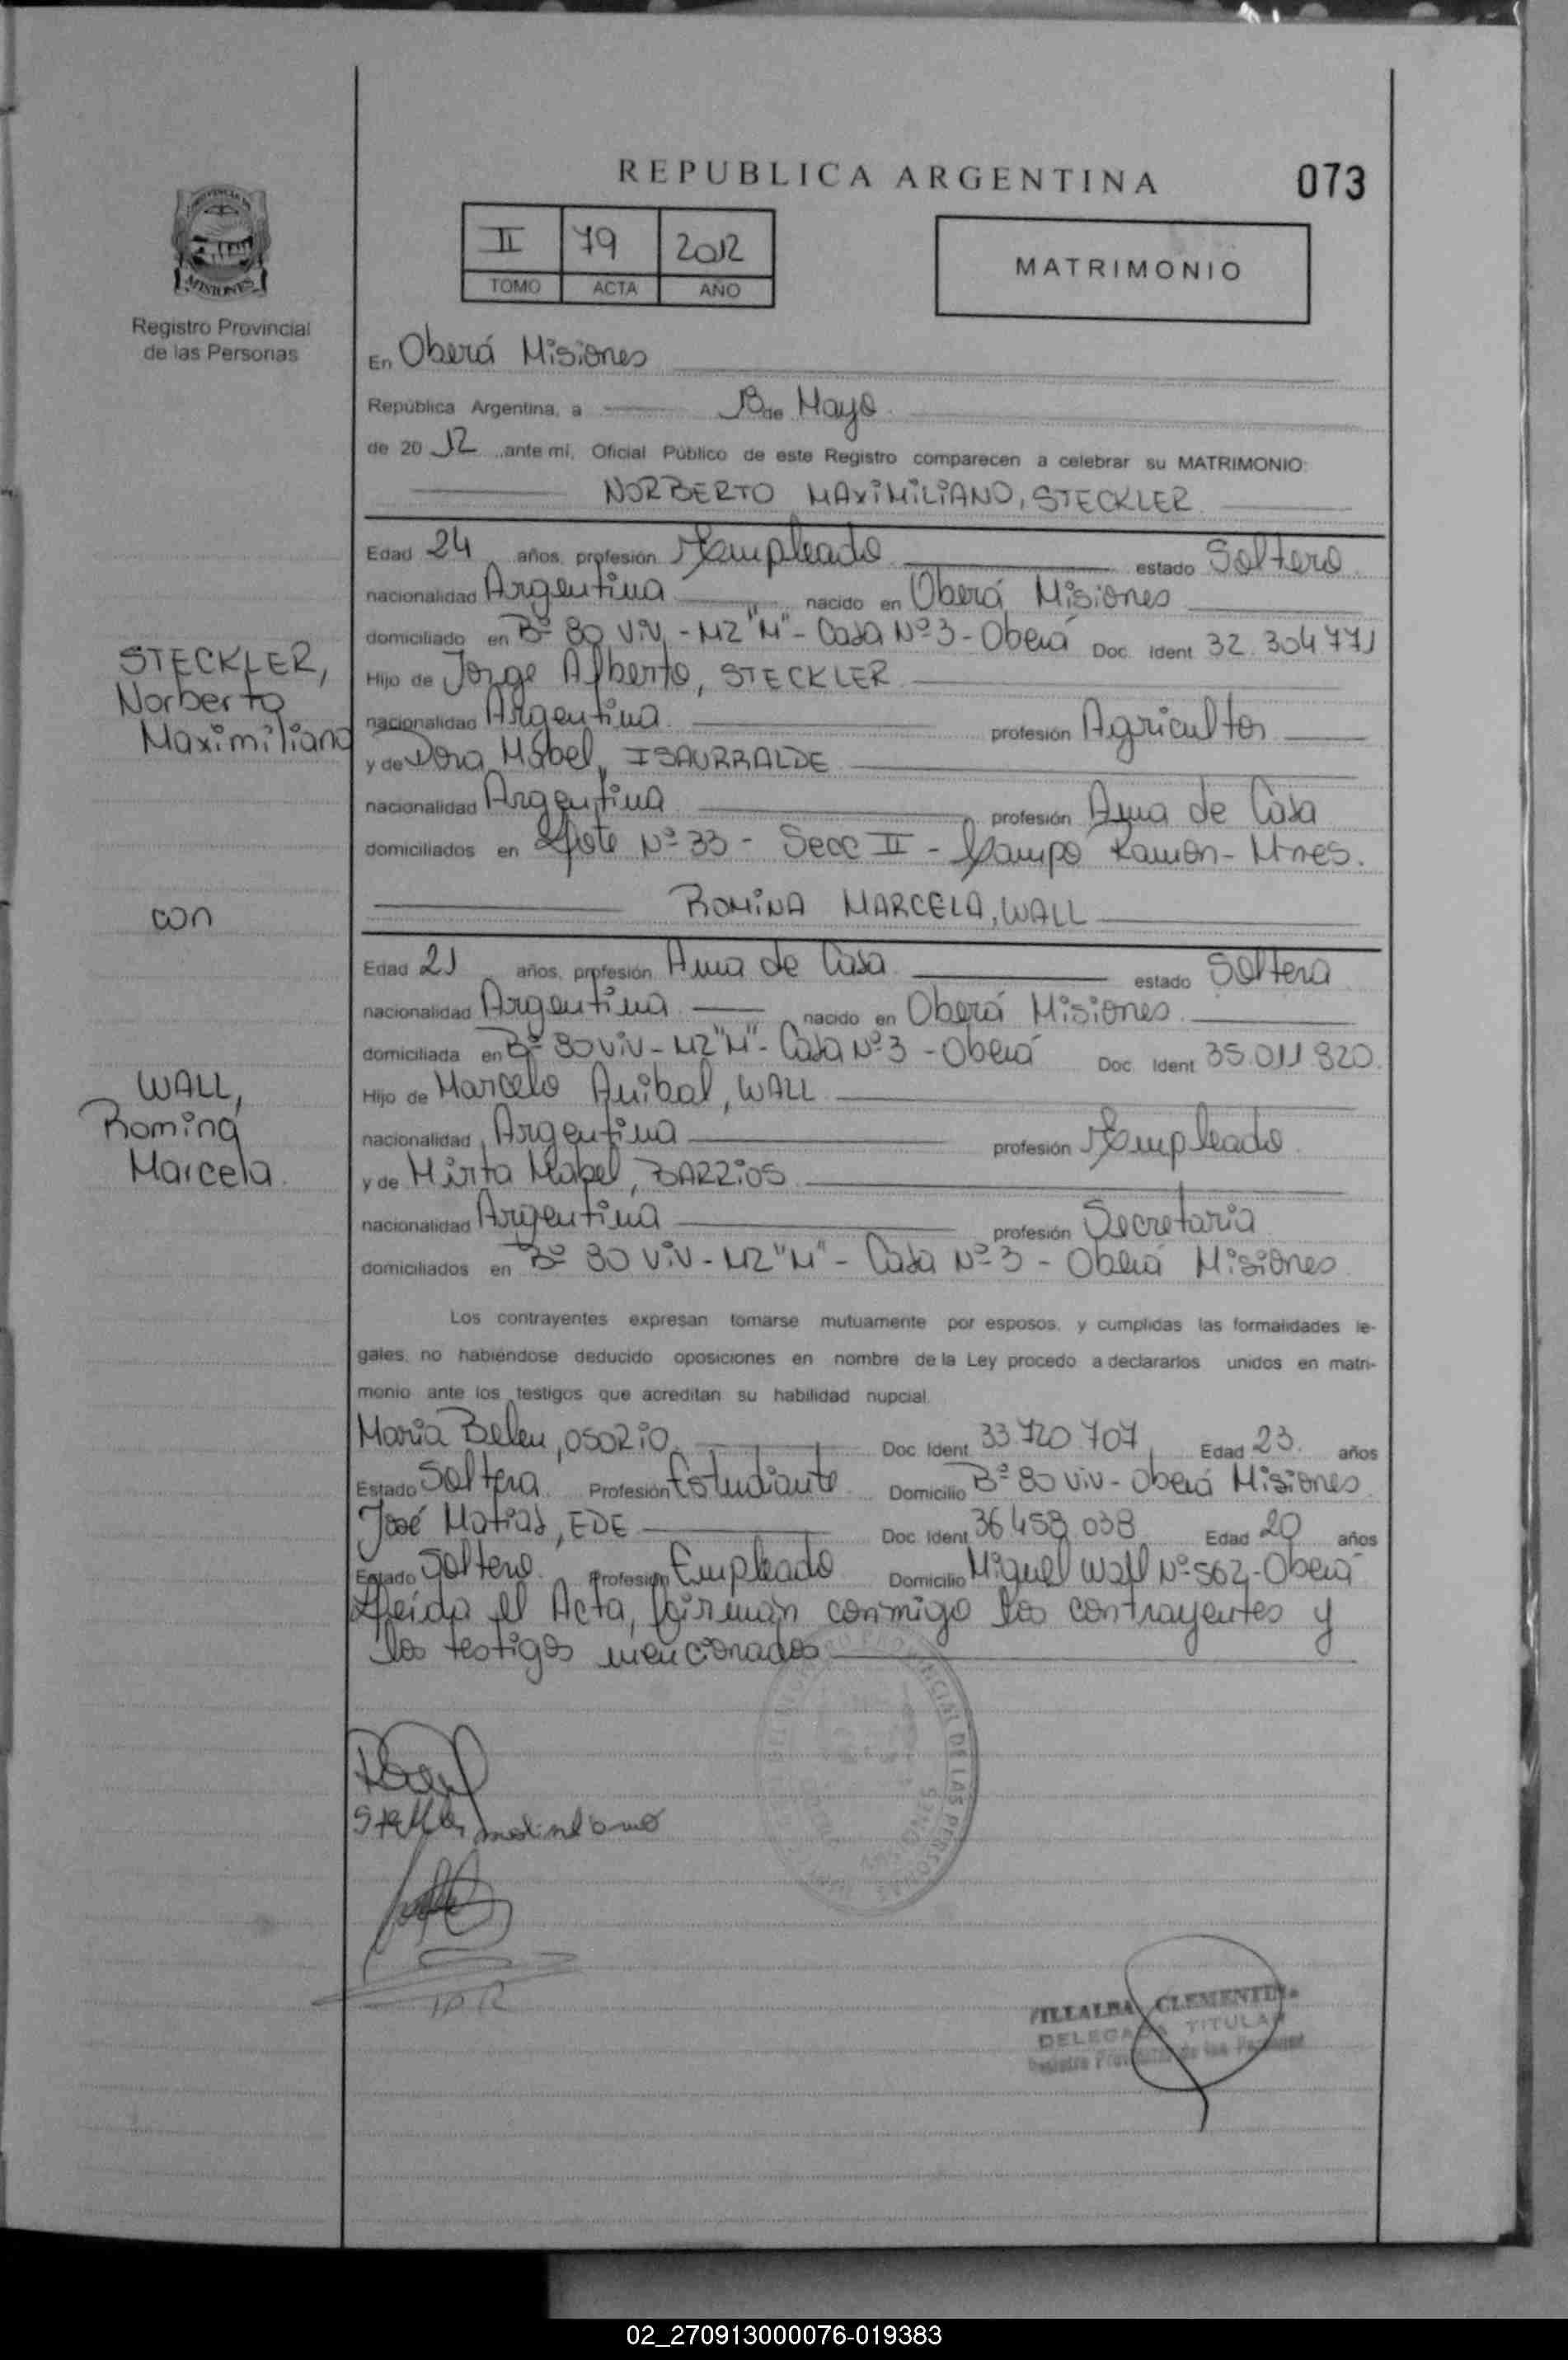 REPUBLICA ARGENTINA
073
II 79 2012
TOMO ACTA AÑO
MATRIMONIO
MISIONES
Registro Provincial
de las Personas
En Oberá Misiones
República Argentina, a 18 de Mayo
de 20 12 ante mi, Oficial Público de este Registro comparecen a celebrar su MATRIMONIO:
NORBERTO MAXIMILIANO, STECKLER
Edad 24 años, profesión Empleado estado Soltero
nacionalidad Argentina nacido en Oberá Misiones
domiciliado en Bº 80 Viv. - MZ "M" - Casa Nº 3 - Oberá Doc. Ident 32.304.771
STECKLER,
Norberto
Maximiliano
Hijo de Jorge Alberto, STECKLER
nacionalidad Argentina profesión Agricultor
y de Dora Mabel, ISAURRALDE
nacionalidad Argentina profesión Ama de Casa
domiciliados en Lote Nº 33 - Secc II - Campo Ramón - Mnes.
con
ROMINA MARCELA, WALL
Edad 21 años, profesión Ama de Casa estado Soltera
nacionalidad Argentina nacido en Oberá Misiones
domiciliada en Bº 80 Viv - MZ "M" - Casa Nº 3 - Oberá Doc. Ident 35.011.820
WALL,
Romina
Marcela
Hijo de Marcelo Anibal, WALL
nacionalidad Argentina profesión Empleado
y de Mirta Mabel, BARRIOS
nacionalidad Argentina profesión Secretaria
domiciliados en Bº 80 Viv - MZ "M" - Casa Nº 3 - Oberá Misiones
Los contrayentes expresan tomarse mutuamente por esposos, y cumplidas las formalidades le-
gales, no habiéndose deducido oposiciones en nombre de la Ley procedo a declararlos unidos en matri-
monio ante los testigos que acreditan su habilidad nupcial.
María Belen, OSORIO Doc. Ident 33.720.707 Edad 23 años
Estado Soltera Profesión Estudiante Domicilio Bº 80 Viv - Oberá Misiones
José Matias, EDE Doc. Ident 36.458.038 Edad 20 años
Estado Soltero Profesión Empleado Domicilio Miguel Wall Nº 562 - Oberá
Leida el Acta, firman conmigo los contrayentes y
los testigos mencionados
VILLALBA CLEMENTINA
DELEGADA TITULAR
Registro Provincial de las Personas
02_270913000076-019383